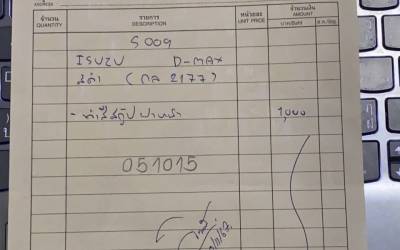 ADDRESS
จำนวน รายการ หน่วยละ จำนวนเงิน
QUANTITY DESCRIPTION UNIT PRICE AMOUNT
บาท/Baht ส.ต./Stg.
S009
ISUZU D-MAX
สีดำ (กล 2177)
- ทำสีสคู๊ปฝาหน้า 1,000
051015